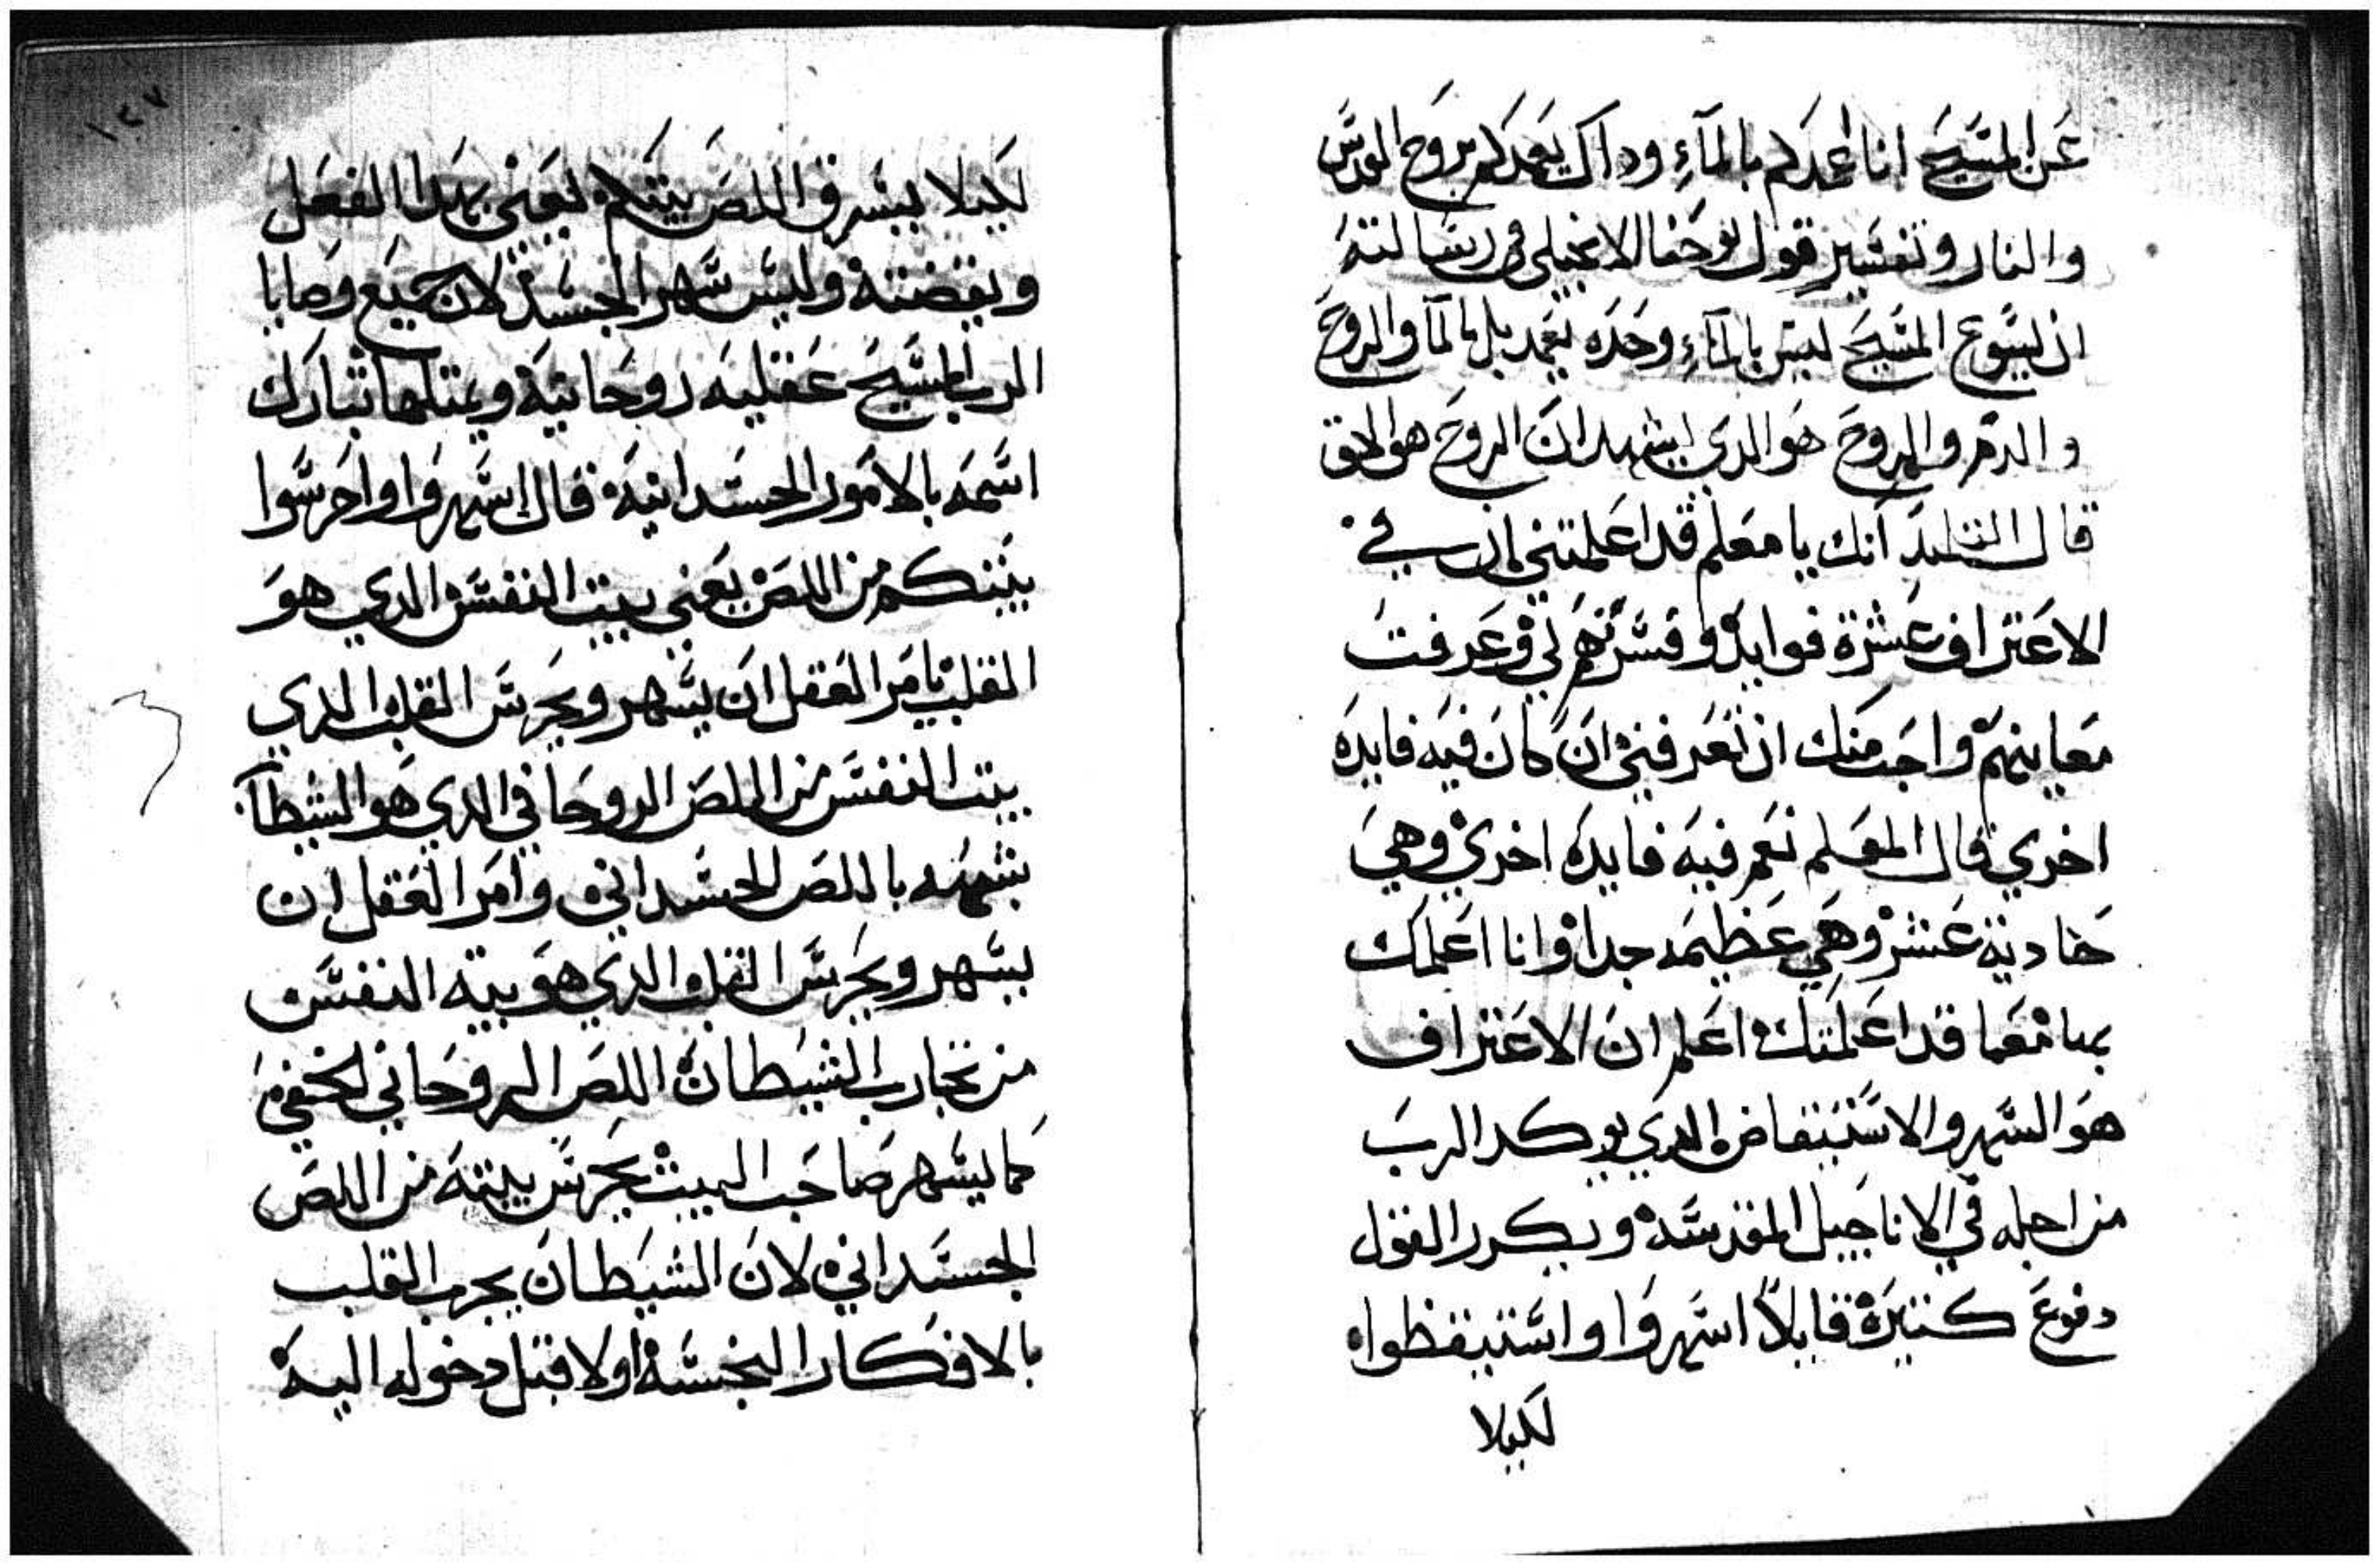 عن المسيح انا اعمدكم بالمآءِ وداك يعمدكم بروح القدس
والنار وتفسير قول يوحنا الانجيلى فى رسالته
ان يسوع المسيح ليس بالمآءِ وحده يعمد بل بالمآ والروح
والدم والروح هو الدي يشهد ان الروح هو الحق
قال التلميد انك يا معلم قد اعلمتني ان في
الاعتراف عشرة فوايد وفسرتهم لي وعرفت
معاينهم واجب منك ان تعرفني ان كان فيه فايده
اخري قال المعلم نعم فيه فايده اخري وهي
حادية عشر وهي عظيمه جدا وانا اعلمك
بها معما قد اعلمتك اعلم ان الاعتراف
هو السهر والاستيقاض الدي يوكد الرب
من اجله في الاناجيل المقدسه ويكرر القول
دفوع كتيرة قايلاً اسهروا واستيقظوا
لكيلا
١٢٧
لكيلا يسرق اللص بيتكم يعني بهدا الفعل
ويقضته وليس سهر الجسد لان جميع وصايا
الرب المسيح عقليه روحانية ويمتلها تبارك
اسمه بالامور الجسدانية قال اسهروا واحرسوا
بيتكم من اللص يعني بيت النفس الدي هو
القلب يامر العقل ان يسهر ويحرس القلب الدي
بيت النفس من اللص الروحاني الدي هو الشيطان
بشبهه باللص الجسداني وامر العقل ان
يسهر ويحرس القلب الدي هو بيته النفس
من تجارب الشيطان اللص الروحاني الخفي
كما يسهر صاحب البيت يحرس بيته من اللص
الجسداني لان الشيطان يجرب القلب
بالافكار النجسه اولا قبل دخوله اليه